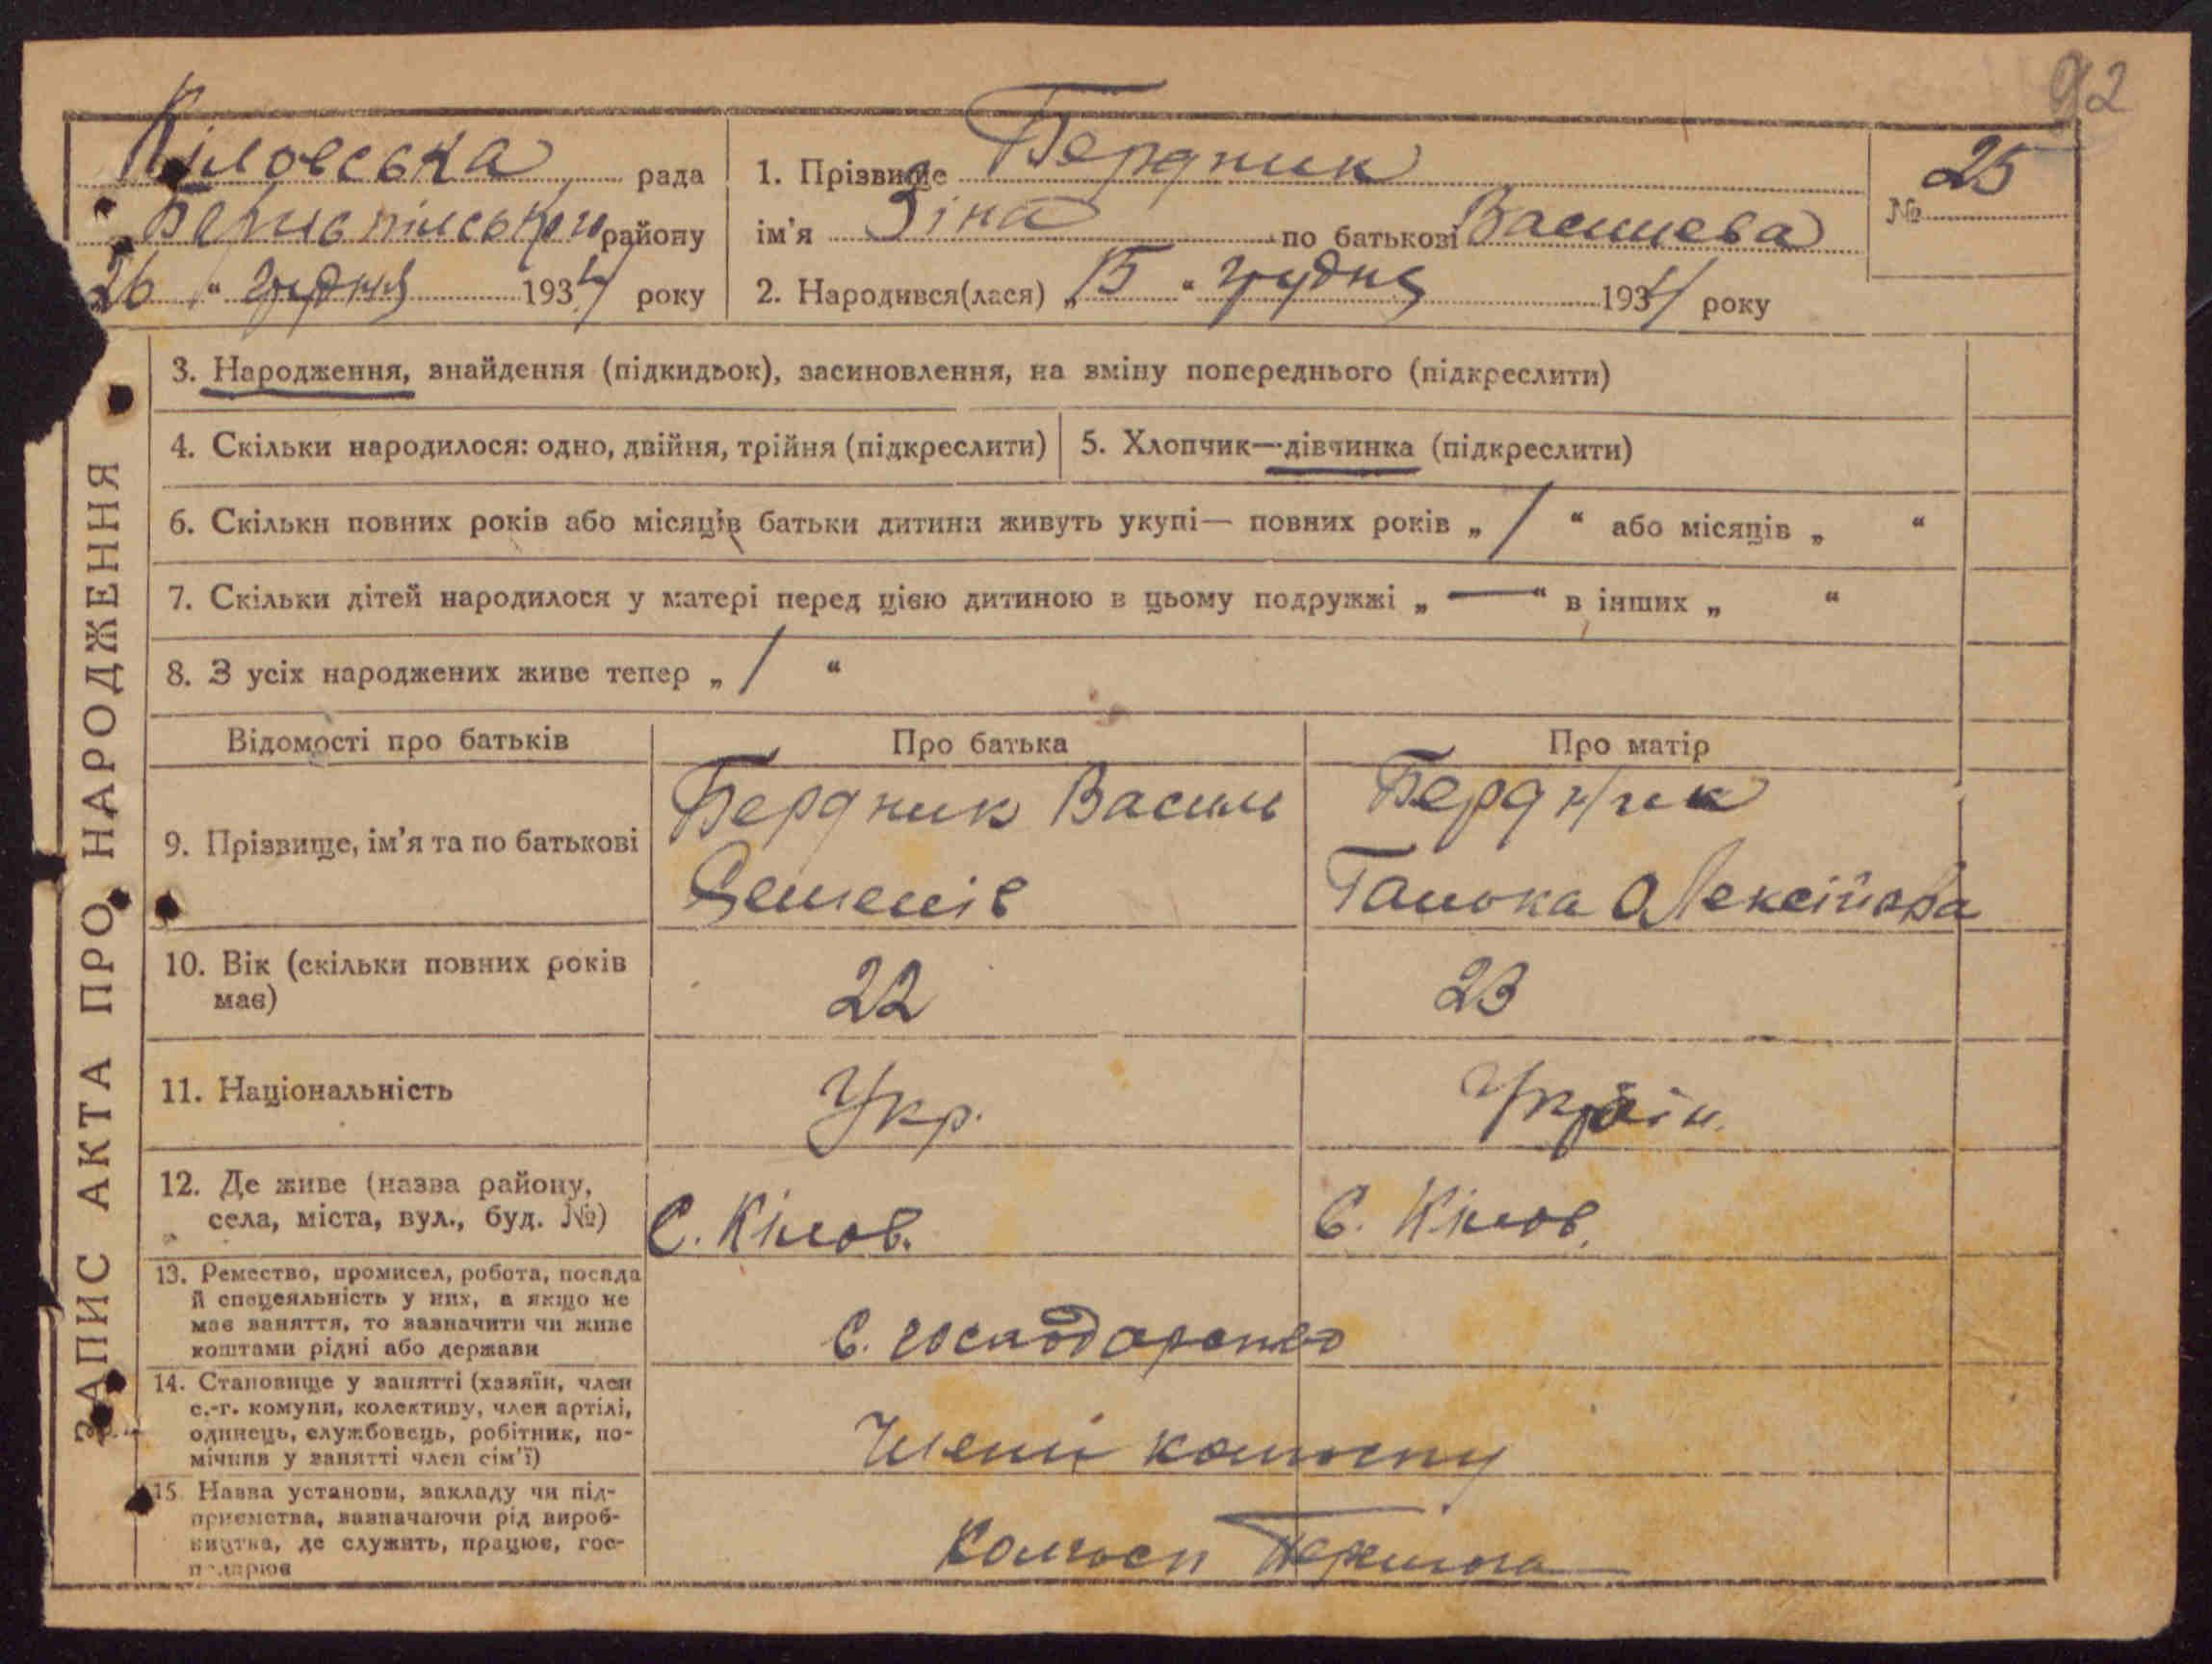 92
Кіловська рада
Бориспільського району
26 " грудня 1934 року
1. Прізвище Бердник
ім'я Зіна по батькові Василева
2. Народився(лася) „15" грудня 1934 року
№ 25
ЗАПИС АКТА ПРО НАРОДЖЕННЯ
3. Народження, знайдення (підкидьок), засиновлення, на зміну попереднього (підкреслити)
4. Скільки народилося: одно, двійня, трійня (підкреслити)
5. Хлопчик—дівчинка (підкреслити)
6. Скільки повних років або місяців батьки дитини живуть укупі— повних років „ 1 " або місяців „ "
7. Скільки дітей народилося у матері перед цією дитиною в цьому подружжі „ — " в інших „ "
8. З усіх народжених живе тепер „ 1 "
Відомості про батьків
Про батька
Про матір
9. Прізвище, ім'я та по батькові
Бердник Василь
Семенів
Бердник
Галька Олексійова
10. Вік (скільки повних років
має)
22
23
11. Національність
Укр.
Україн.
12. Де живе (назва району,
села, міста, вул., буд. №)
С. Кілов.
С. Кілов.
13. Ремество, промисел, робота, посада
й спецеяльність у них, а якщо не
має заняття, то зазначити чи живе
коштами рідні або держави
С. господарство
14. Становище у занятті (хазяїн, член
с.-г. комуни, колективу, член артілі,
одинець, службовець, робітник, по-
мічник у занятті член сім'ї)
Члени колгоспу
15. Назва установи, закладу чи під-
приємства, зазначаючи рід вироб-
ництва, де служить, працює, гос-
подарює
Колгосп